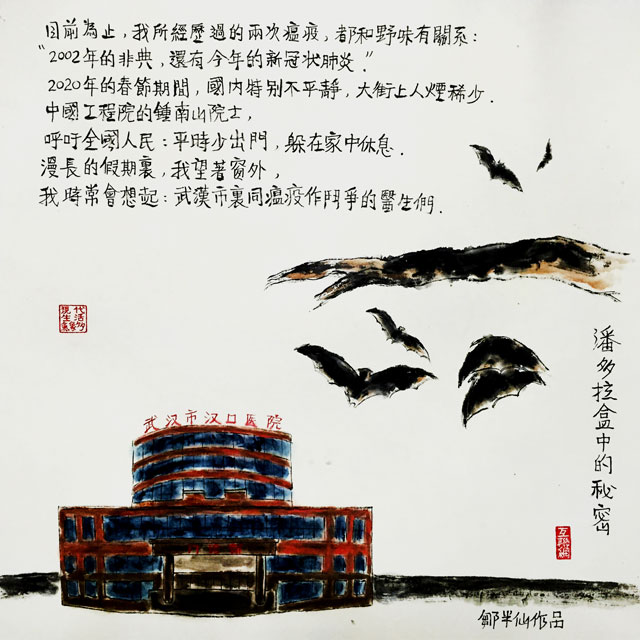 目前為止，我所經歷過的兩次瘟疫，都和野味有關系：
"2002年的非典，還有今年的新冠状肺炎."
2020年的春節期間，國内特别不平静，大街上人煙稀少.
中國工程院的鍾南山院士，
呼吁全國人民：平時少出門，躲在家中休息.
漫長的假期裏，我望著窗外，
我時常會想起：武漢市裏同瘟疫作鬥爭的醫生們.
潘多拉盒中的秘密
武汉市汉口医院
鄒半仙作品